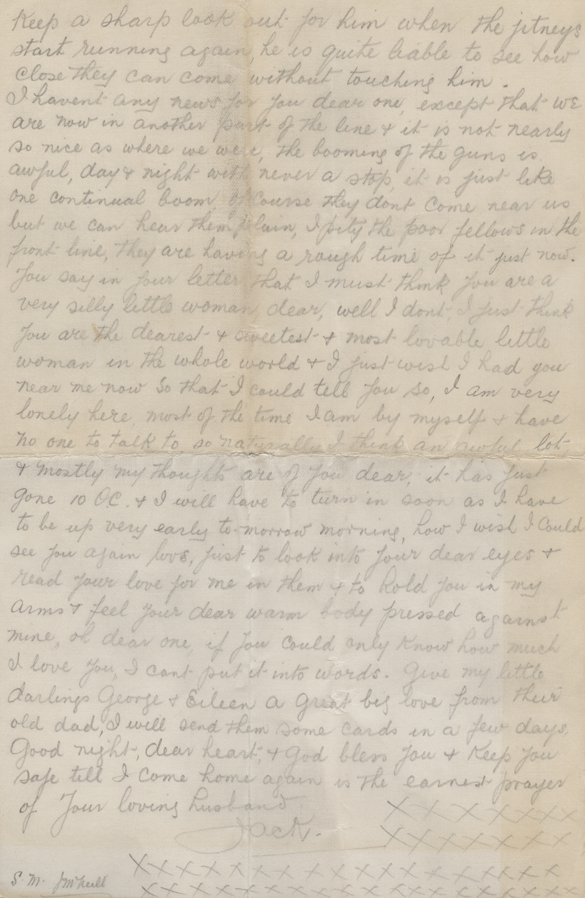 Keep a sharp look out for him when the jitneys
start running again, he is quite liable to see how
close they can come without touching him.
I havent any news for you dear one, except that we
are now in another part of the line & it is not nearly
so nice as where we were, the booming of the guns is
awful, day & night with never a stop, it is just like
one continual boom, of course they dont come near us
but we can hear them plain, I pity the poor fellows in the
front line, they are having a rough time of it just now.
You say in your letter that I must think you are a
very silly little woman, dear, well I dont, I just think
you are the dearest & sweetest & most lovable little
woman in the whole world & I just wish I had you
near me now so that I could tell you so, I am very
lonely here, most of the time I am by myself & have
no one to talk to so naturally I think an awful lot
& mostly my thoughts are of you dear, it has just
gone 10 OC. & I will have to turn in soon as I have
to be up very early to-morrow morning, how I wish I could
see you again love, just to look into your dear eyes &
read your love for me in them & to hold you in my
arms & feel your dear warm body pressed against
mine, oh dear one, if you could only know how much
I love you, I cant put it into words. Give my little
darlings George & Eileen a great big love from their
old dad, I will send them some cards in a few days,
Good night, dear heart, & God bless you & keep you
safe till I come home again is the earnest prayer
of your loving husband
Jack.
X X X X X X X X
X X X X X X X X
X X X X X X X X X X X X X X X X
S. M. JMNeill
X X X X X X X X X X X X X X X X